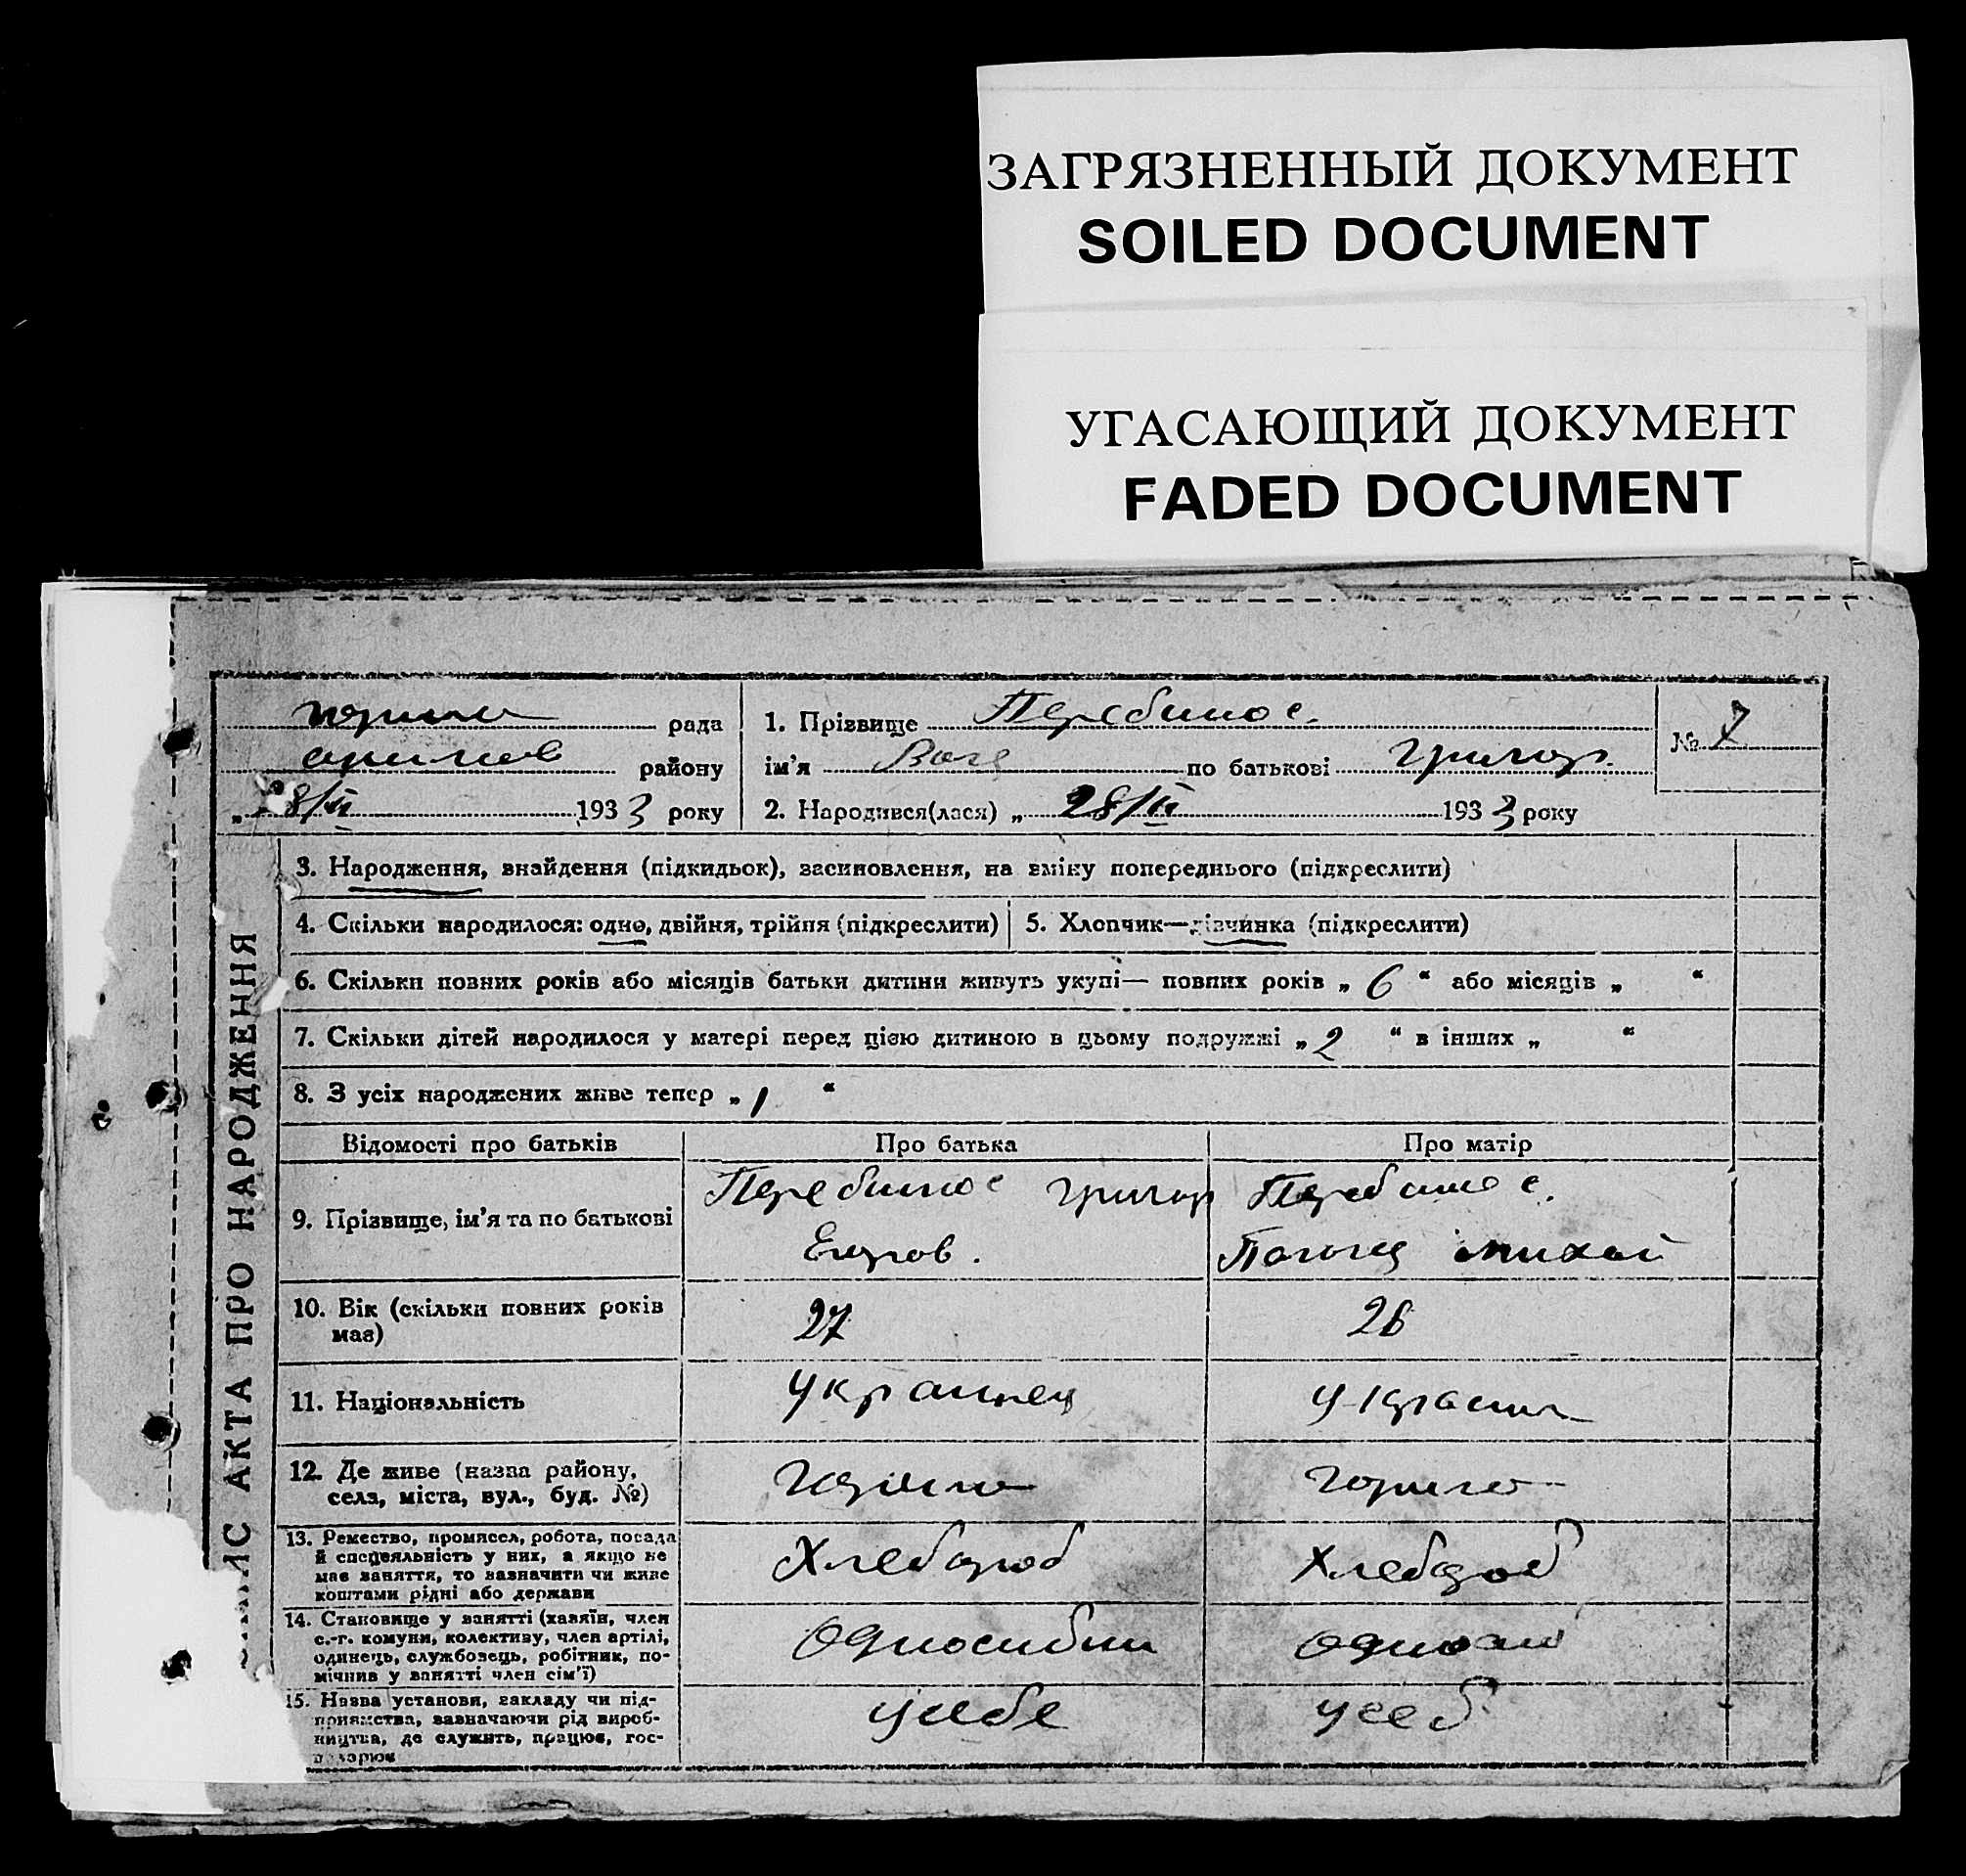 ЗАГРЯЗНЕННЫЙ ДОКУМЕНТ
SOILED DOCUMENT
УГАСАЮЩИЙ ДОКУМЕНТ
FADED DOCUMENT
рада
району
8/VI 1933 року
1. Прізвище Перебинос.
ім'я по батькові Григор.
2. Народився(лася) „ 28/VI 1933 року
№ 7
АКТА ПРО НАРОДЖЕННЯ
3. Народження, знайдення (підкидьок), засиновлення, на зміну попереднього (підкреслити)
4. Скільки народилося: одно, двійня, трійня (підкреслити)
5. Хлопчик—дівчинка (підкреслити)
6. Скільки повних років або місяців батьки дитини живуть укупі— повних років „ 6 “ або місяців „ “
7. Скільки дітей народилося у матері перед цією дитиною в цьому подружжі „ 2 “ в інших „ “
8. З усіх народжених живе тепер „ 1 “
Відомості про батьків Про батька Про матір
9. Прізвище, ім'я та по батькові
Перебинос Григор
Егоров.
Перебинос.
Михай
10. Вік (скільки повних років
має)
27
26
11. Національність
Украинец
Украин
12. Де живе (назва району,
села, міста, вул., буд. №)
13. Ремество, промисел, робота, посада
й спеціяльність у них, а якщо не
має заняття, то зазначити чи живе
коштами рідні або держави
Хлебороб
Хлебороб
14. Становище у занятті (хазяїн, член
с.-г. комуни, колективу, член артілі,
одинець, службовець, робітник, по-
мічник у занятті член сім'ї)
15. Назва установи, закладу чи під-
приємства, зазначаючи рід вироб-
ництва, де служить, працює, гос-
подарює
у себе
у себ